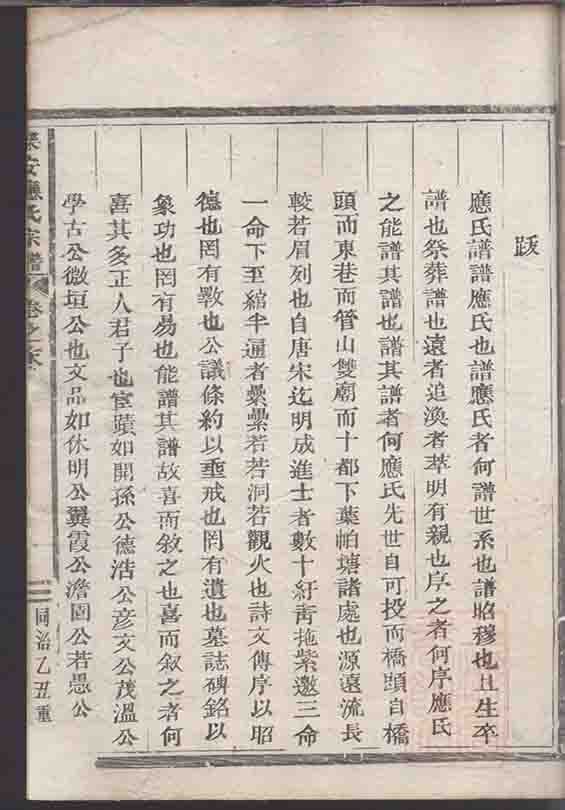 跋
應氏譜譜應氏也譜應氏者何譜世系也譜昭穆也且生卒
譜也祭葬譜也遠者追渙者萃明有親也序之者何序應氏
之能譜其譜也譜其譜者何應氏先世自可投而橋頭自橋
頭而東巷而管山雙廟而十都下葉帕塘諸處也源遠流長
較若眉列也自唐宋迄明成進士者數十紆青拖紫邀三命
一命下至綰半通者纍纍若若洞若觀火也詩文傳序以昭
德也罔有斁也公議條約以垂戒也罔有遺也墓誌碑銘以
象功也罔有易也能譜其譜故喜而敘之也喜而叙之者何
喜其多正人君子也宦蹟如開孫公德浩公彥文公茂溫公
學古公微垣公也文品如休明公翼霞公澹園公若愚公
安應氏宗譜 卷之 一 同治乙丑重